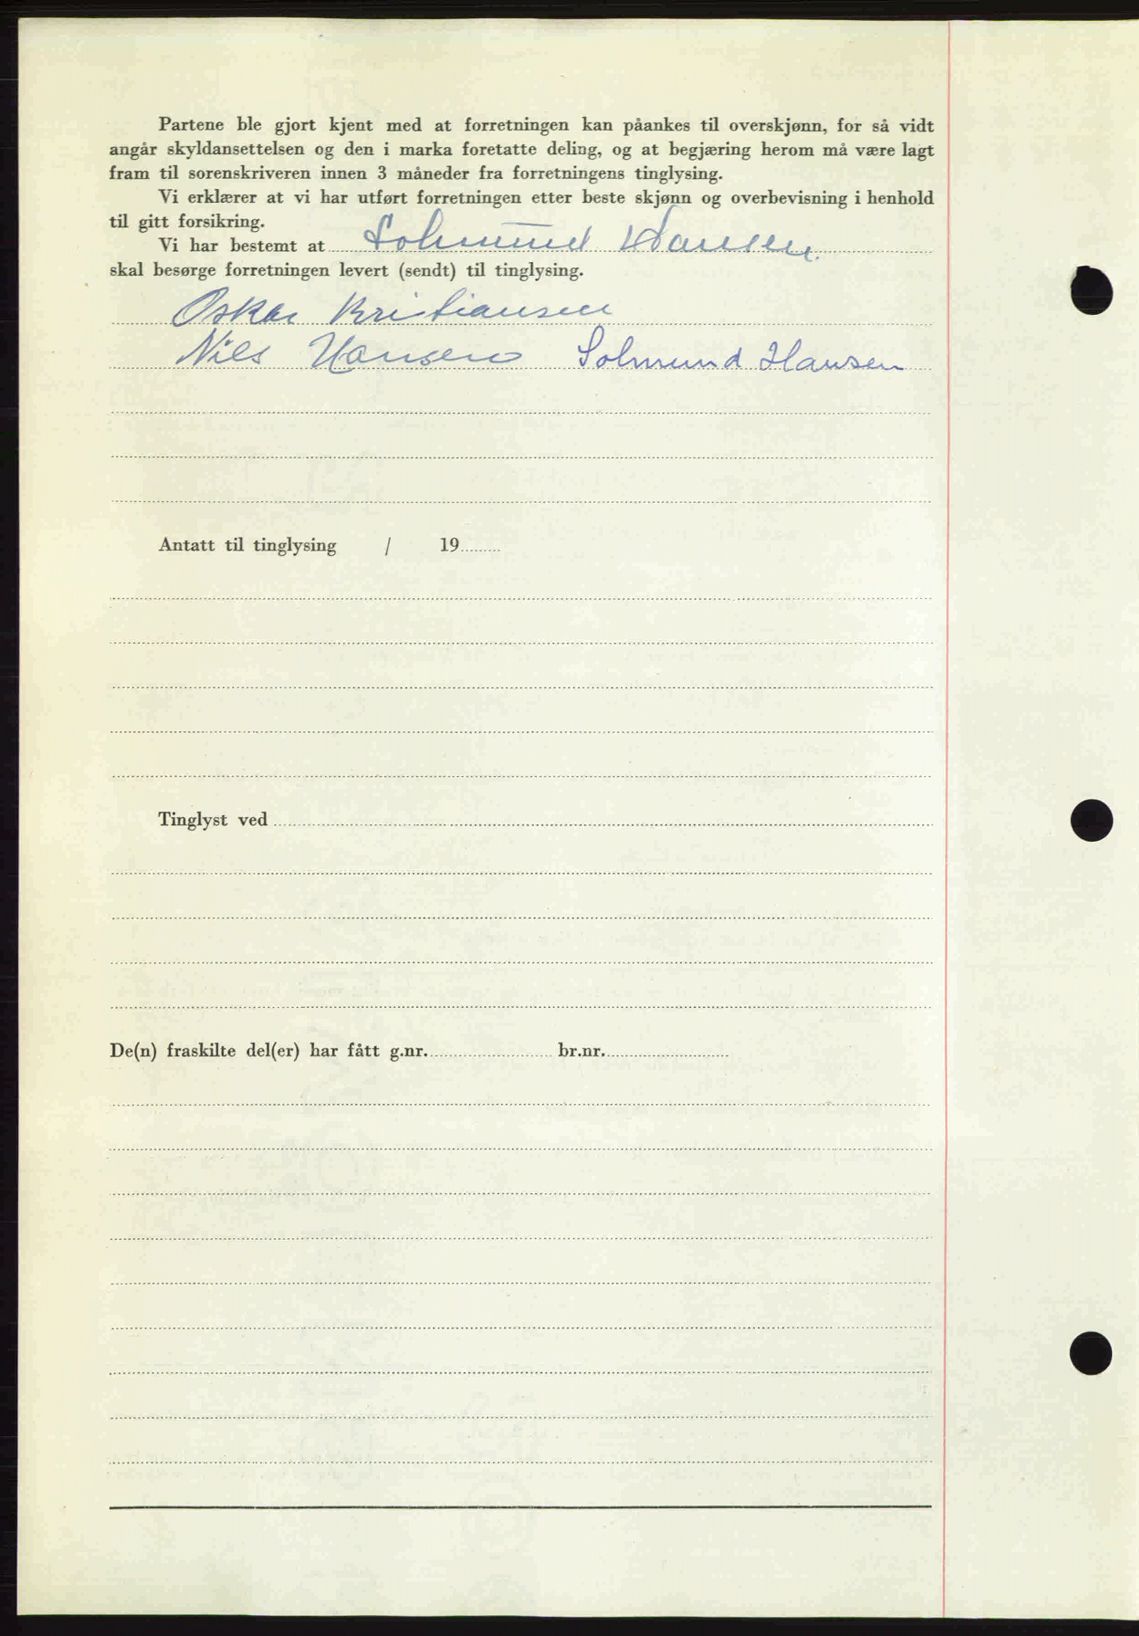 Partene ble gjort kjent med at forretningen kan påankes til overskjønn, for så vidt
angår skyldansettelsen og den i marka foretatte deling, og at begjæring herom må være lagt
fram til sorenskriveren innen 3 måneder fra forretningens tinglysing.
Vi erklærer at vi har utført forretningen etter beste skjønn og overbevisning i henhold
til gitt forsikring.
Vi har bestemt at Solmund Hansen.
skal besørge forretningen levert (sendt) til tinglysing.
Oskar Kristiansen
Nils Hansen Solmund Hansen
Antatt til tinglysing / 19
Tinglyst ved
De(n) fraskilte del(er) har fått g.nr. br.nr.